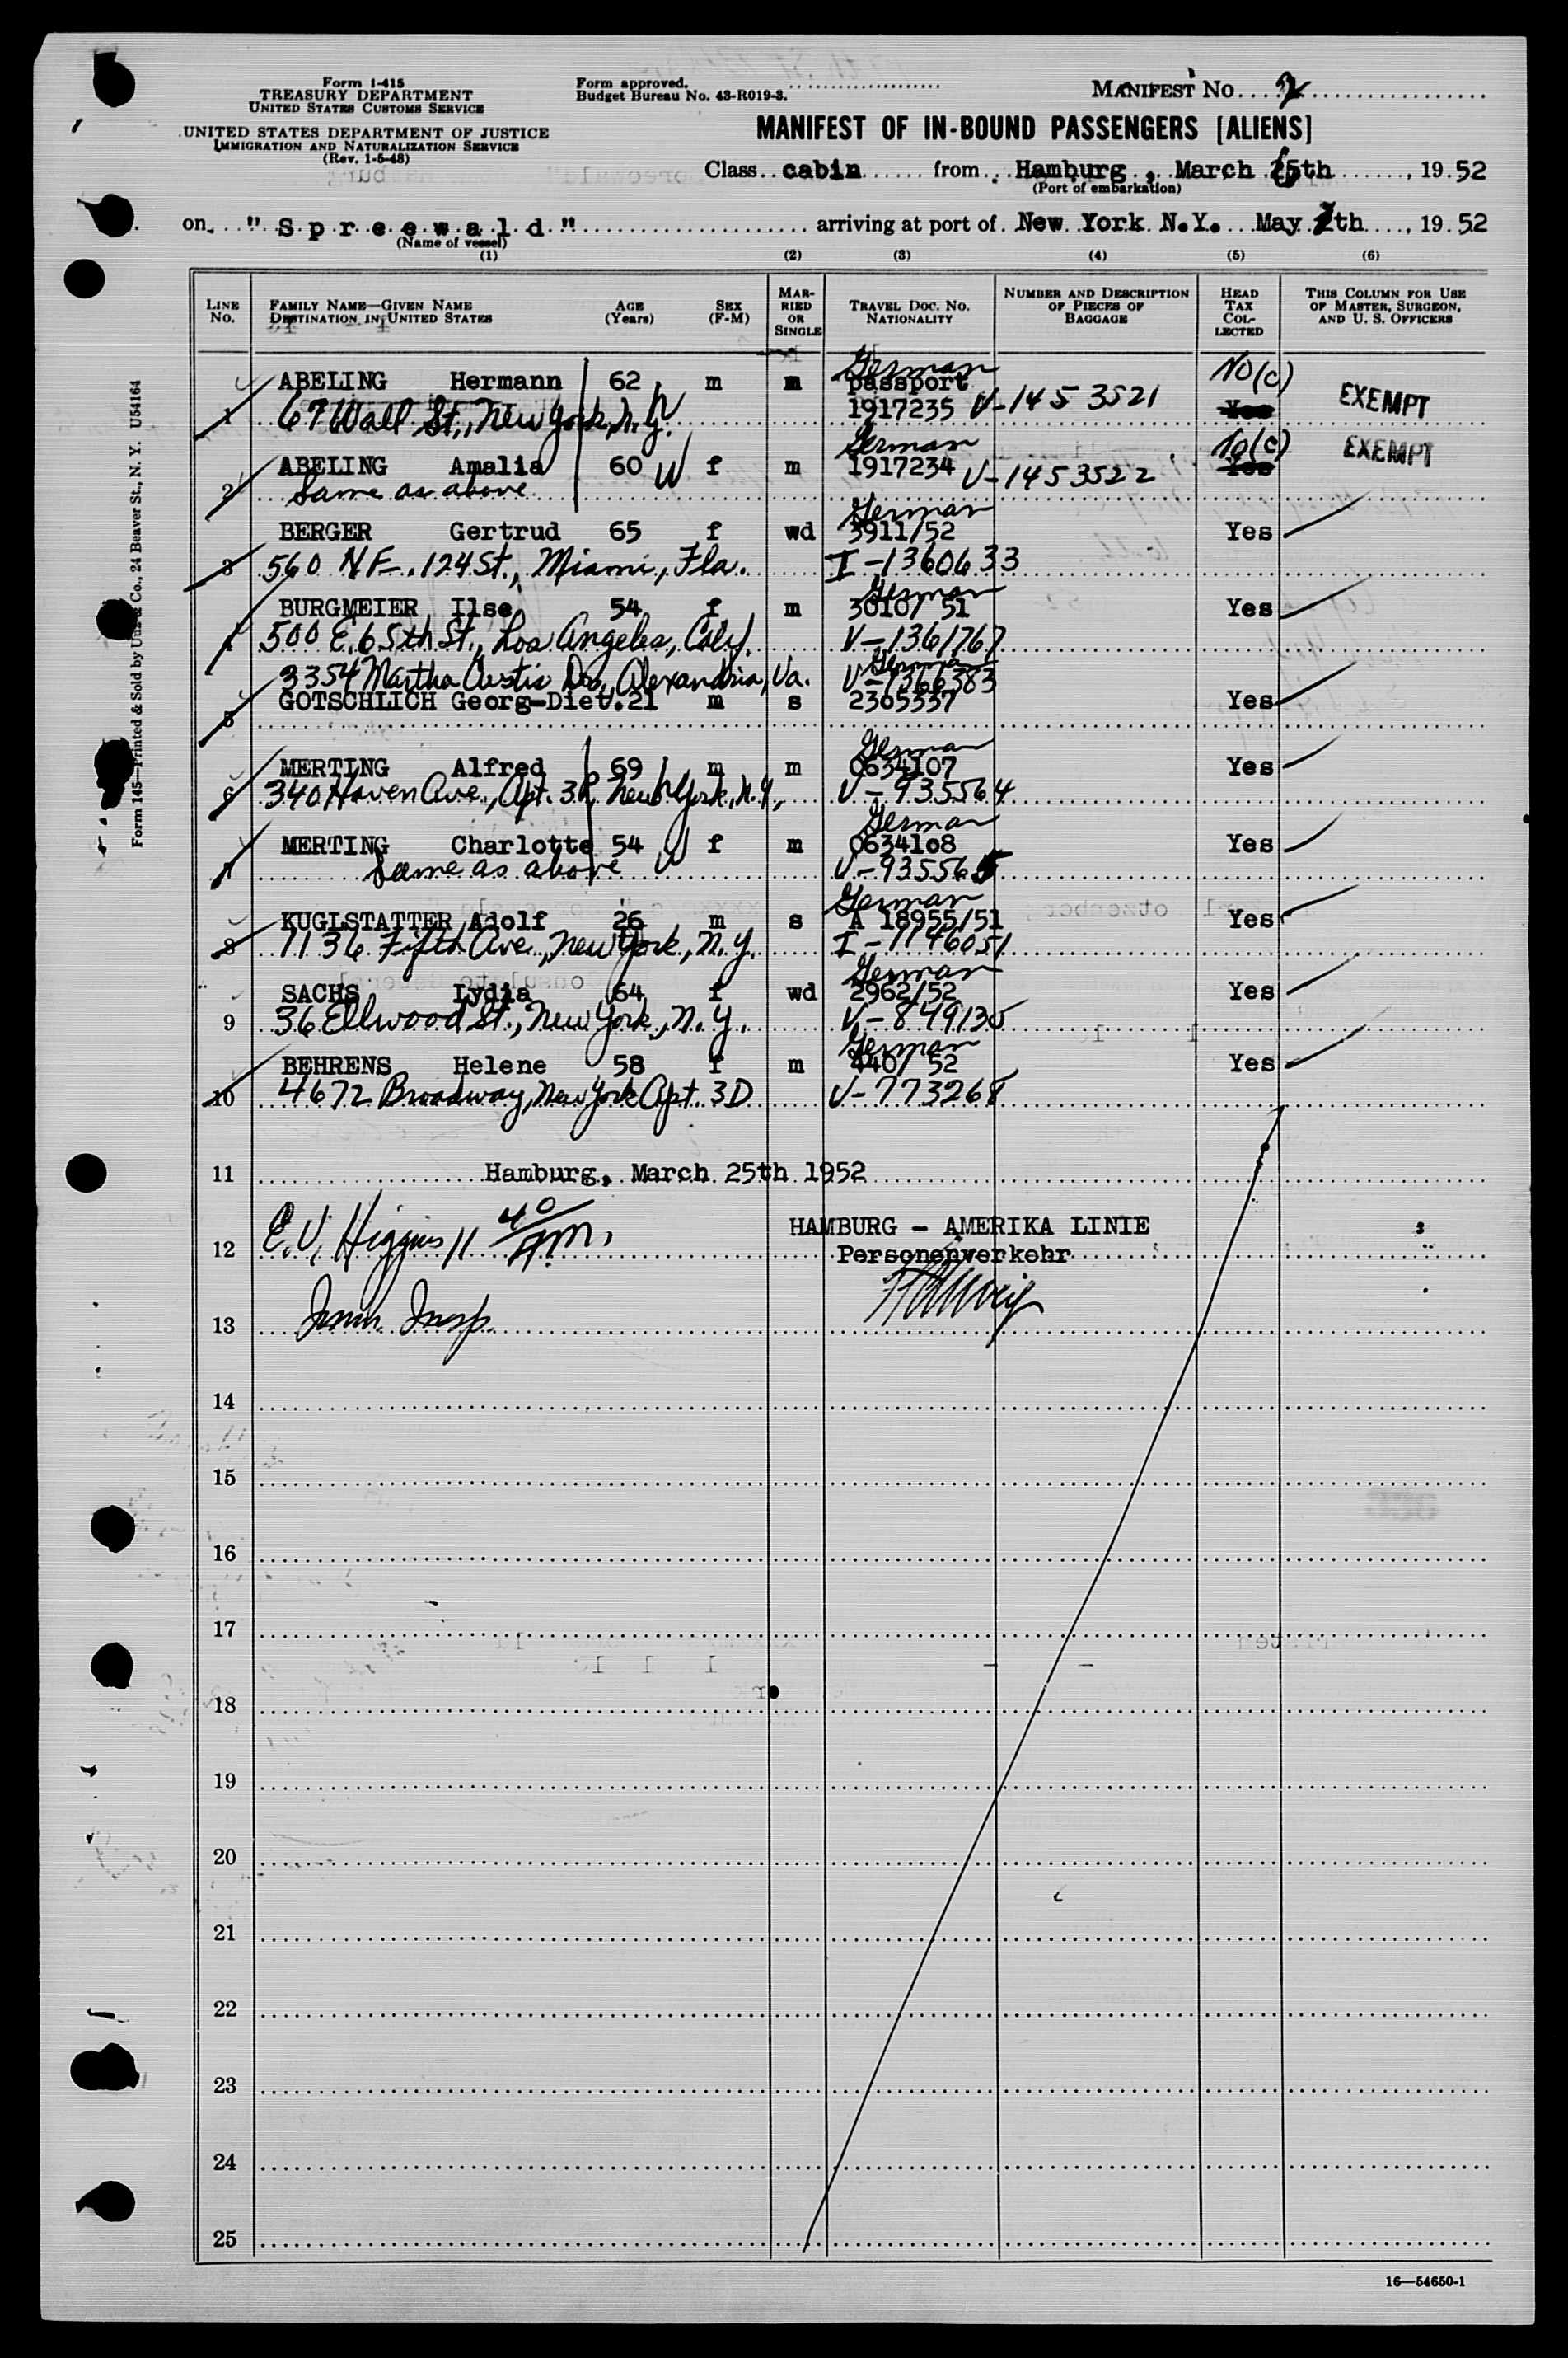 Form I-415
TREASURY DEPARTMENT
UNITED STATES CUSTOMS SERVICE
UNITED STATES DEPARTMENT OF JUSTICE
IMMIGRATION AND NATURALIZATION SERVICE
(Rev. 1-5-48)
Form approved.
Budget Bureau No. 43-R019-3.
MANIFEST NO. 2
MANIFEST OF IN-BOUND PASSENGERS [ALIENS]
Class cabin from Hamburg, March 25th, 1952
(Port of embarkation)
on "Spreewald" arriving at port of New York N.Y. May 7th, 1952
(Name of vessel)
(1) (2) (3) (4) (5) (6)
LINE NO.
FAMILY NAME—GIVEN NAME
DESTINATION IN UNITED STATES
AGE (Years)
SEX (F-M)
MARRIED OR SINGLE
TRAVEL DOC. NO. NATIONALITY
NUMBER AND DESCRIPTION OF PIECES OF BAGGAGE
HEAD TAX COLLECTED
THIS COLUMN FOR USE OF MASTER, SURGEON, AND U. S. OFFICERS
German No(c)
ABELING Hermann 62 m m passport EXEMPT
1 67 Wall St., New York, N.Y. 1917235 V-1453521 Yes
German No(c)
ABELING Amalia 60 W f m 1917234 V-1453522 Yes EXEMPT
2 Same as above
German
BERGER Gertrud 65 f wd 3911/52 Yes
3 560 N.E. 124 St., Miami, Fla. I-1360633
German
BURGMEIER Ilse 54 f m 3010/ 51 Yes
4 500 E. 65th St., Los Angeles, Calif. V-1361767
German
3354 Martha Custis Dr., Alexandria, Va. V-1366383
GOTSCHLICH Georg-Diet. 21 m s 2305337 Yes
5
German
MERTING Alfred 69 m m 0634107 Yes
6 340 Haven Ave., Apt. 3R, New York, N.Y. V-935564
German
MERTING Charlotte 54 W f m 0634108 Yes
7 Same as above V-935565
German
KUGLSTATTER Adolf 26 m s A 18955/51 Yes
8 1136 Fifth Ave., New York, N.Y. I-1146051
German
SACHS Lydia 64 f wd 2962/52 Yes
9 36 Ellwood St., New York, N.Y. V-849135
German
BEHRENS Helene 58 f m 440/ 52 Yes
10 4672 Broadway, New York Apt. 3D V-773268
11 Hamburg, March 25th 1952
HAMBURG - AMERIKA LINIE
12 E.V. Higgins 11 40 AM. Personenverkehr
13 Imm. Insp.
14
15
16
17
18
19
20
21
22
23
24
25
16—54650-1
Form 145—Printed & Sold by Unz & Co., 24 Beaver St., N. Y. U54164